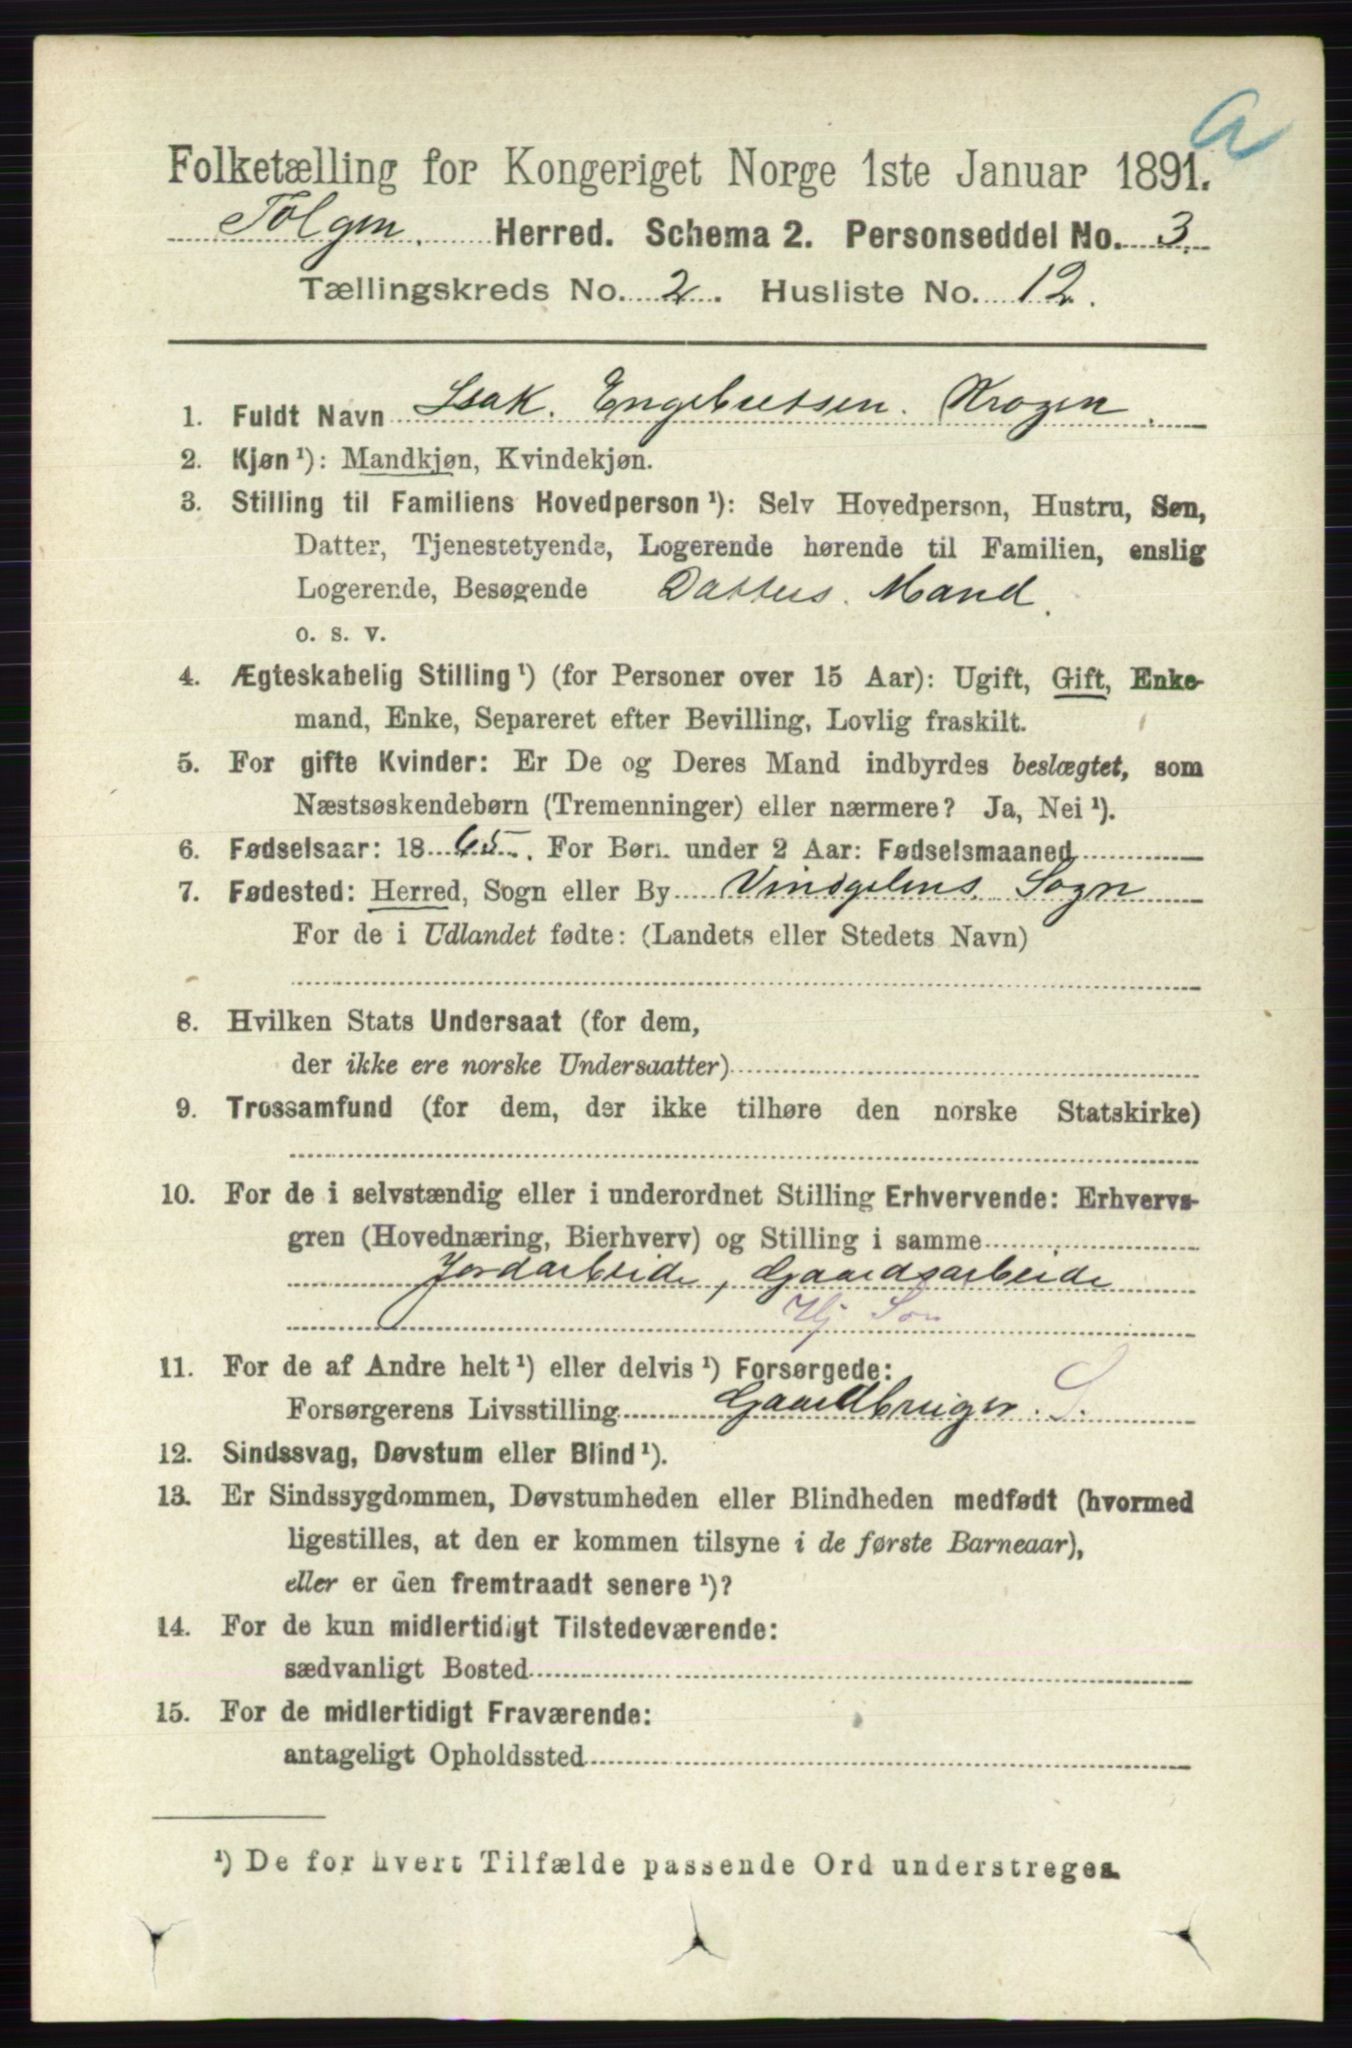 G
Folketælling for Kongeriget Norge 1ste Januar 1891.
Tolgen. Herred. Schema 2. Personseddel No. 3.
Tællingskreds No. 2. Husliste No. 12.
1. Fuldt Navn Isak. Engebretsen. Krogen.
2. Kjøn ¹): Mandkjøn, Kvindekjøn.
3. Stilling til Familiens Hovedperson ¹): Selv Hovedperson, Hustru, Søn,
Datter, Tjenestetyende, Logerende hørende til Familien, enslig
Logerende, Besøgende Datters. Mand.
o. s. v.
4. Ægteskabelig Stilling ¹) (for Personer over 15 Aar): Ugift, Gift, Enke-
mand, Enke, Separeret efter Bevilling, Lovlig fraskilt.
5. For gifte Kvinder: Er De og Deres Mand indbyrdes beslægtet, som
Næstsøskendebørn (Tremenninger) eller nærmere? Ja, Nei ¹).
6. Fødselsaar: 1865. For Børn under 2 Aar: Fødselsmaaned
7. Fødested: Herred, Sogn eller By Vindgelens. Sogn
For de i Udlandet fødte: (Landets eller Stedets Navn)
8. Hvilken Stats Undersaat (for dem,
der ikke ere norske Undersaatter)
9. Trossamfund (for dem, der ikke tilhøre den norske Statskirke)
10. For de i selvstændig eller i underordnet Stilling Erhvervende: Erhvervs-
gren (Hovednæring, Bierhverv) og Stilling i samme
Jordarbeide, Gaardsarbeide
Hj Søn
11. For de af Andre helt ¹) eller delvis ¹) Forsørgede:
Forsørgerens Livsstilling Gaardbruger. S.
12. Sindssvag, Døvstum eller Blind ¹).
13. Er Sindssygdommen, Døvstumheden eller Blindheden medfødt (hvormed
ligestilles, at den er kommen tilsyne i de første Barneaar),
eller er den fremtraadt senere ¹)?
14. For de kun midlertidigt Tilstedeværende:
sædvanligt Bosted
15. For de midlertidigt Fraværende:
antageligt Opholdssted
¹) De for hvert Tilfælde passende Ord understreges.